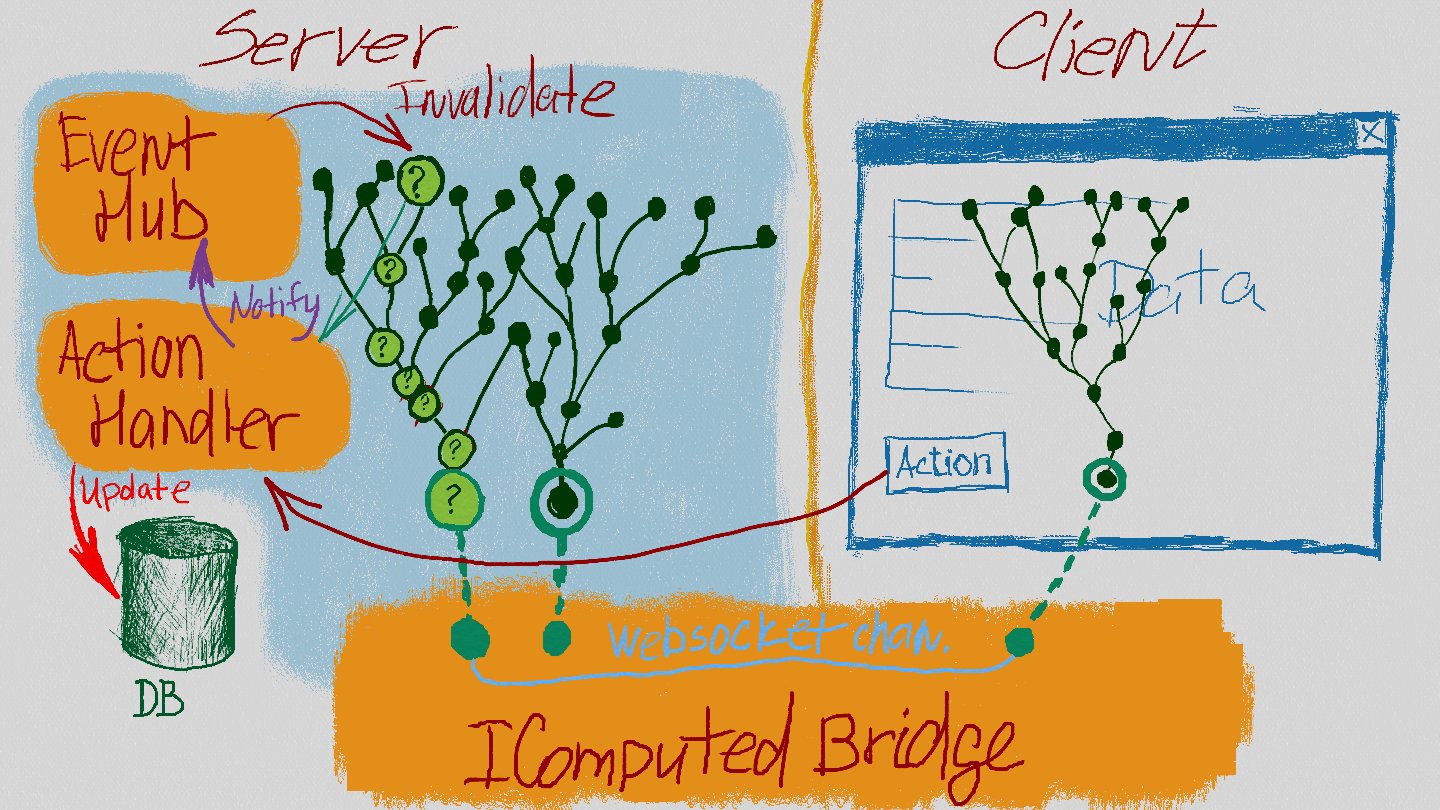 Server
Client
Invalidate
Event
Hub
?
?
Notify
?
Action
Handler
?
?
?
?
Update
DB
X
Data
Action
Websocket chan.
IComputed Bridge